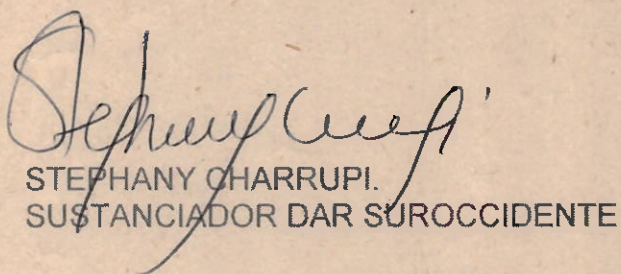 Stephany Charrupi
STEPHANY CHARRUPI.
SUSTANCIADOR DAR SUROCCIDENTE